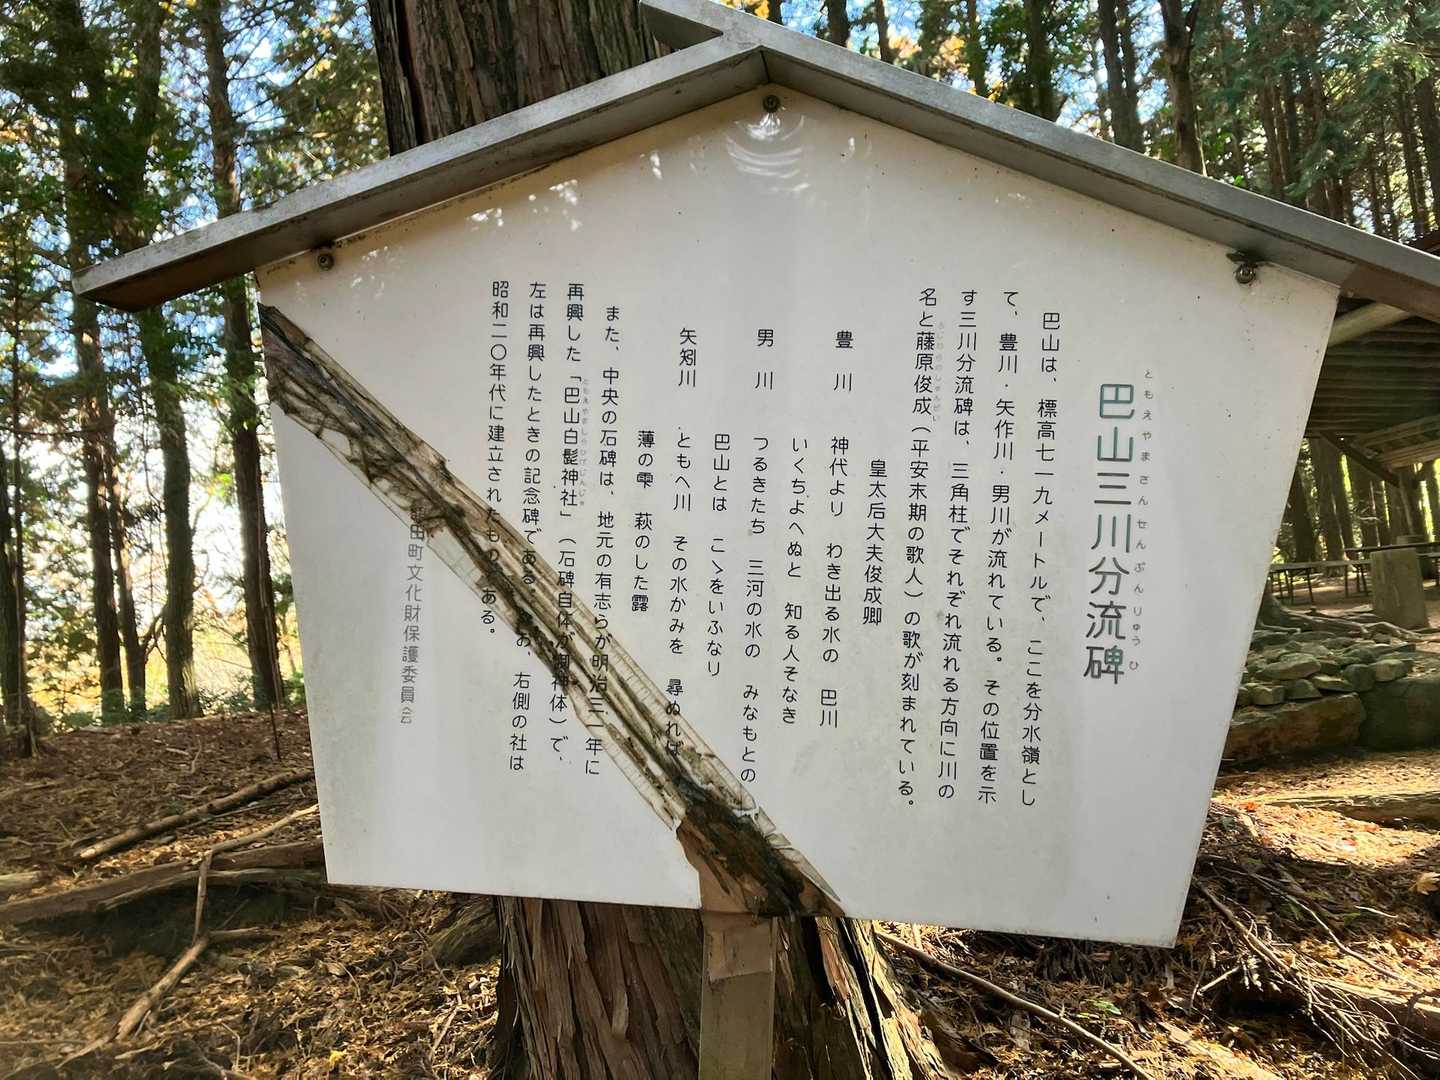 巴山三川分流碑
ともえやまさんせんぶんりゅうひ
巴山は、標高七一九メートルで、ここを分水嶺とし
て、豊川・矢作川・男川が流れている。その位置を示
す三川分流碑は、三角柱でそれぞれ流れる方向に川の
名と藤原俊成(平安末期の歌人)の歌が刻まれている。
ふじわらのしゅんぜい
皇太后大夫俊成卿
豊川 神代より わき出る水の 巴川
いくちよへぬと 知る人そなき
男川 つるきたち 三河の水の みなもとの
巴山とは こゝをいふなり
矢矧川 ともへ川 その水かみを 尋ぬれば
薄の雫 萩のした露
また、中央の石碑は、地元の有志らが明治三一年に
再興した「巴山白髭神社」(石碑自体が御神体)で、
ともえやましらひげじんじゃ
左は再興したときの記念碑である。なお、右側の社は
昭和二〇年代に建立されたものである。
田町文化財保護委員会